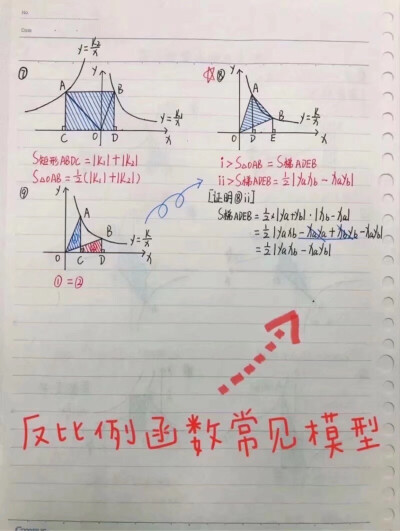 No.
Date
⑦
y=K₂/x
y=K₁/x
A
B
C
O
D
x
y
S矩形ABDC=|K₁|+|K₂|
S△OAB=½(|K₁|+|K₂|)
⑧
y
A
B
y=K/x
O
D
E
x
i>S△OAB=S梯ADEB
ii>S梯ADEB=½|yₐxb-xₐyb|
[证明⑧ii]
S梯ADEB=½·|yₐ+yb|·|xb-xₐ|
=½|yₐxb-xₐyₐ+xbyb-xₐyb|
=½|yₐxb-xₐyb|
⑨
y
A
B
y=K/x
O
C
D
x
①=②
反比例函数常见模型